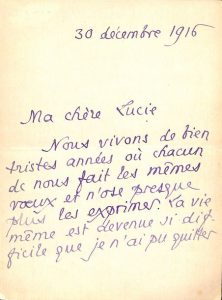 30 décembre 1916
Ma chère Lucie
Nous vivons de bien
tristes années où chacun
de nous fait les mêmes
vœux et n'ose presque
plus les exprimer. La vie
même est devenue si dif-
ficile que je n'ai pu quitter